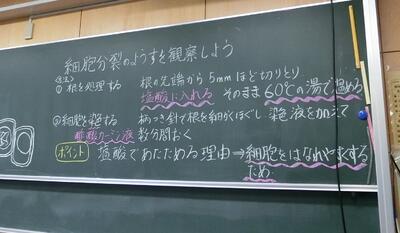 細胞分裂のようすを観察しよう
(方法)
① 根を処理する 根の先端から5mmほど切りとり
塩酸に入れる そのまま60℃の湯で温める
②細胞を染色する 柄つき針で根を細かくほぐし 染色液を加えて
酢酸カーミン液 数分間おく
ポイント 塩酸であたためる理由→細胞をはなれやすくする
ため